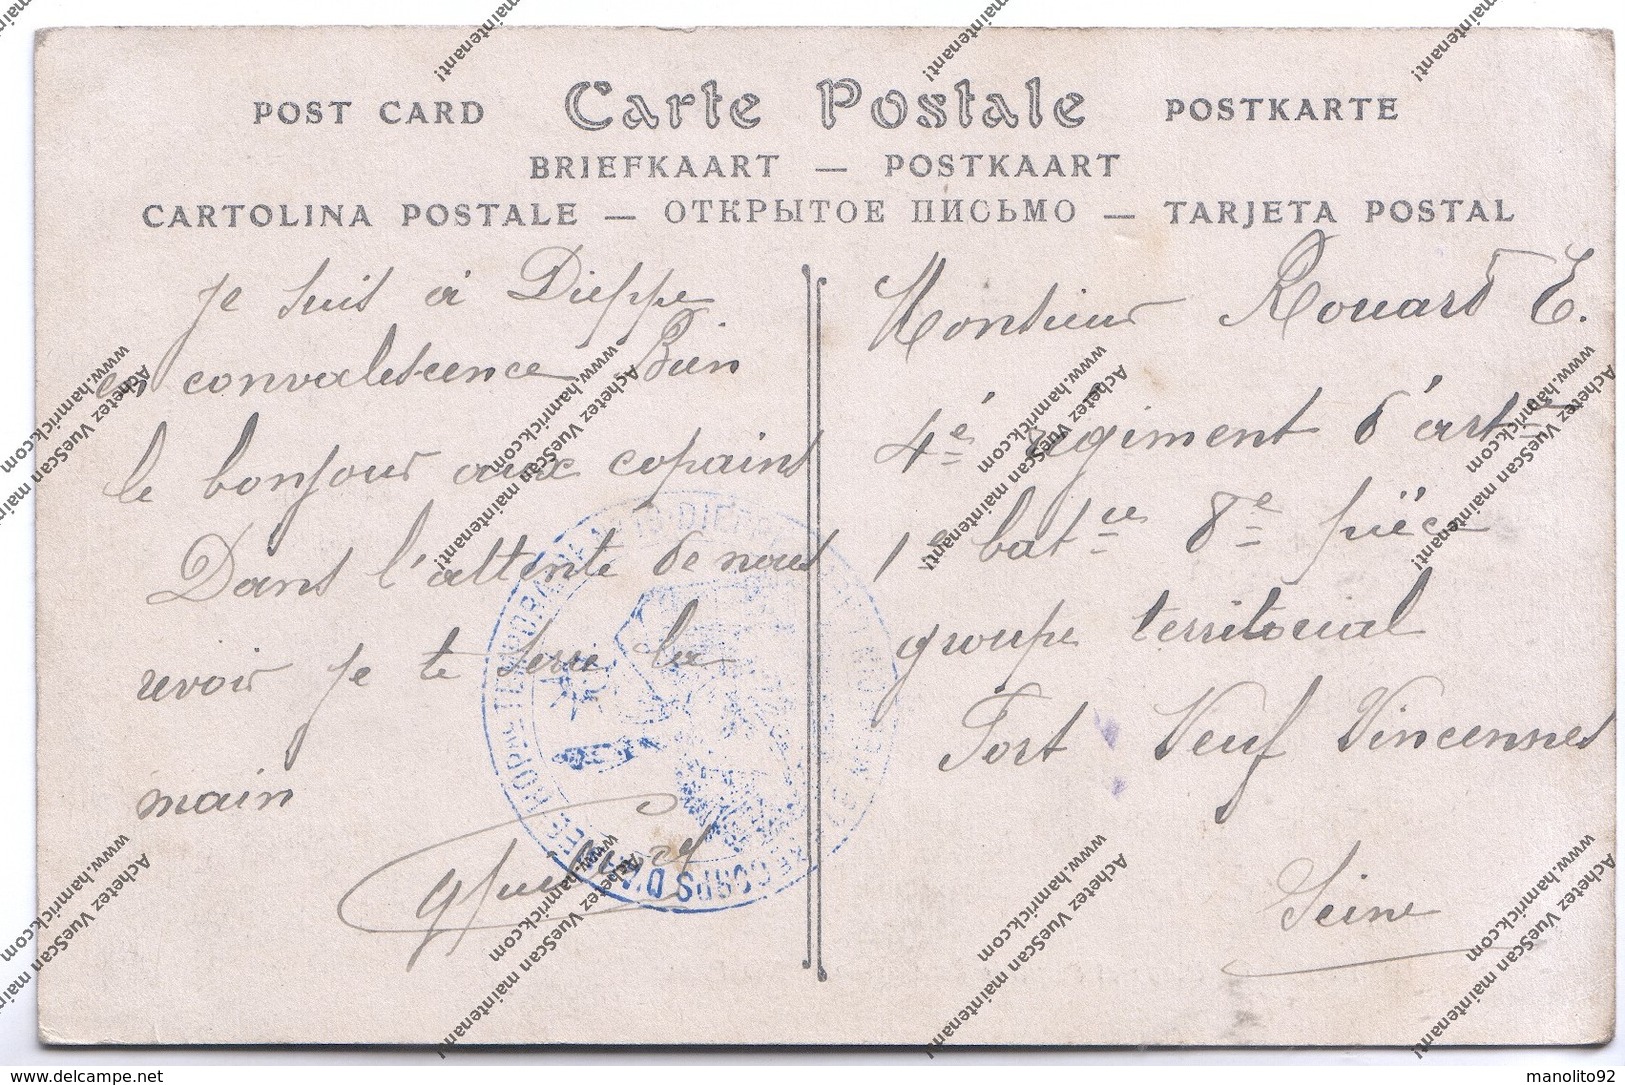 POST CARD Carte Postale POSTKARTE
BRIEFKAART — POSTKAART
CARTOLINA POSTALE — ОТКРЫТОЕ ПИСЬМО — TARJETA POSTAL
Je suis à Dieppe
en convalescence Bien
le bonjour aux copains
Dans l'attente de nous
revoir je te serre la
main
Monsieur Rouard E.
4é régiment d'art
1e batie 8e pièce
groupe territorial
Fort Neuf Vincennes
Seine
HOPAL TEMPORAIRE
DIEPPE
CORPS D'ARMÉE
Achetez VueScan maintenant!
www.hamrick.com
delcampe.net
manolito92